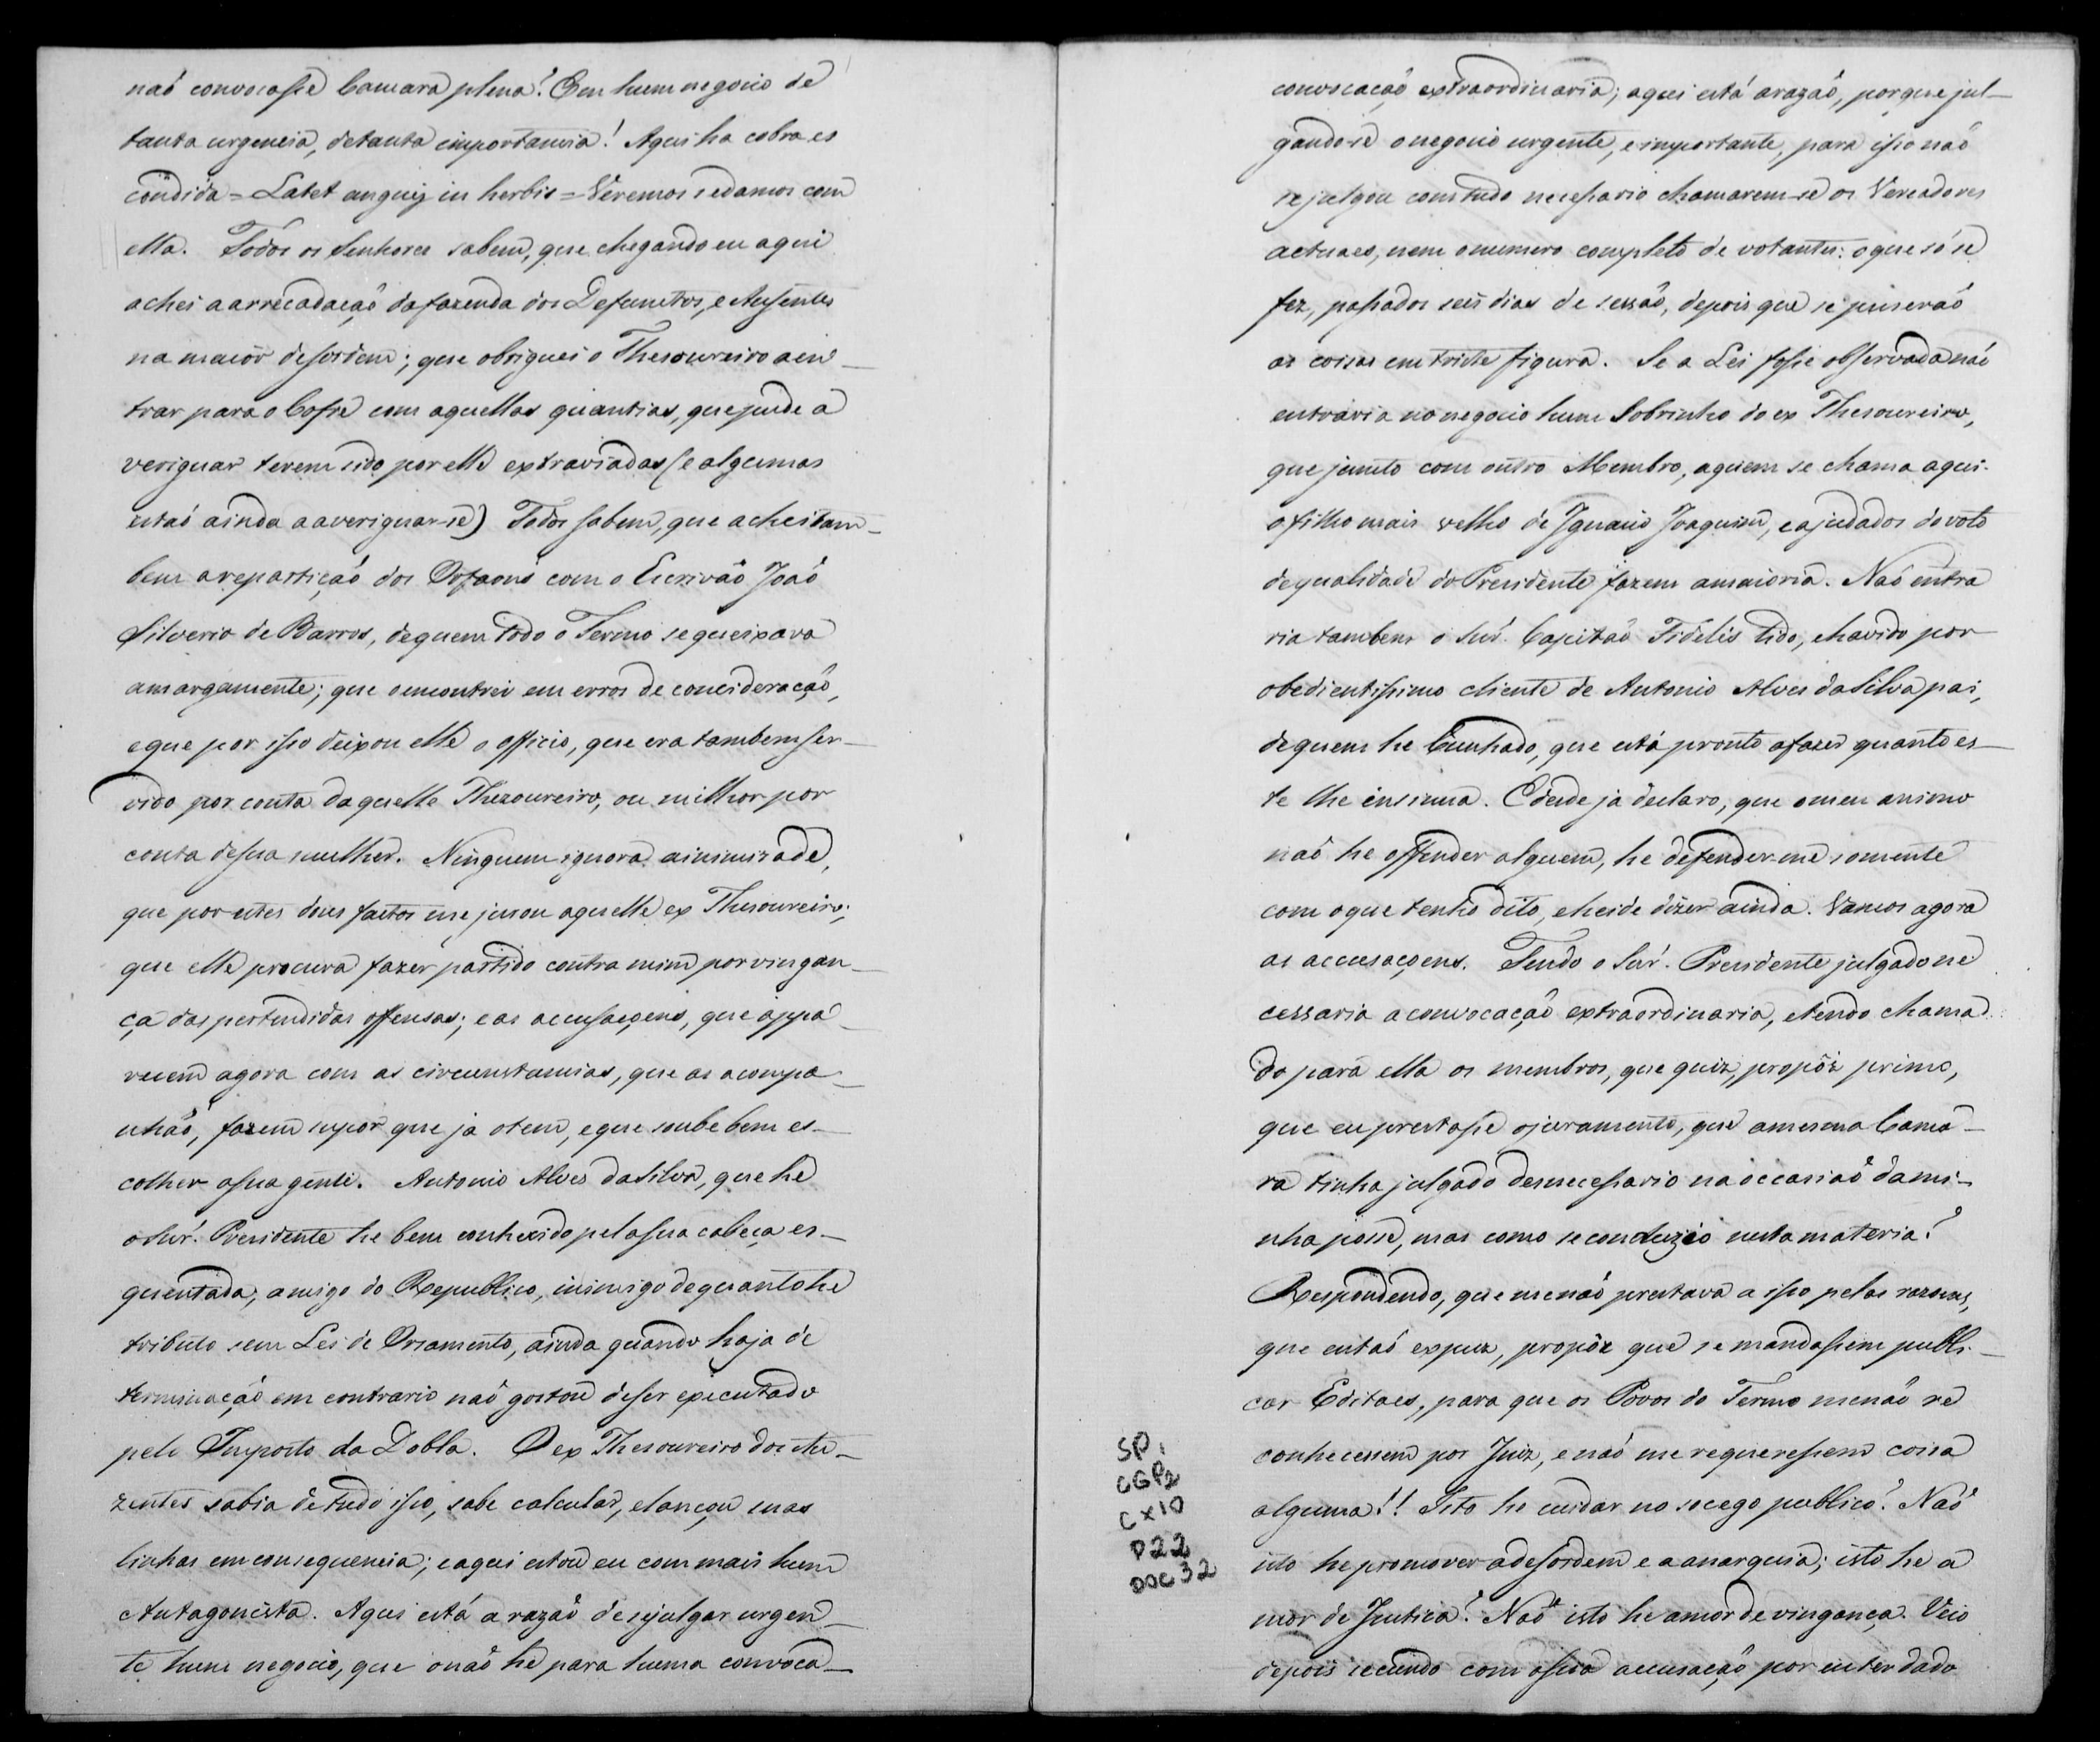 naõ convocasse Camara plena? Em hum negocio de
tanta urgencia, de tanta importancia! Aqui ha cobra es
condida = Latet anguis in herbis = Veremos se damos com
ella. Todos os Senhores sabem, que chegando eu aqui
achei a arrecadaçaõ da fazenda dos Defunctos, e Ausentes
na maior desordem; que obriguei o Thesoureiro a en-
trar para o Cofre com aquellas quantias, que pude a
veriguar terem sido por elle extraviadas (e algumas
estaõ ainda a averiguar-se) Todos sabem, que achei tam-
bem a repartiçaõ dos Orfaons com o Escrivaõ Joaõ
Silverio de Barros, de quem todo o Termo se queixava
amargamente; que o encontrei em erros de concideraçaõ,
e que por isso deixou elle o officio, que era tambem ser-
vido por conta daquelle Thezoureiro, ou milhor por
conta de sua mulher. Ninguem ignora a inimizade,
que por estes dous factos me jurou aquelle ex Thesoureiro;
que elle procura fazer partido contra mim por vingan-
ça das pertendidas offensas; e as accusaçoens, que appa-
recem agora com as circunstancias, que as acompa-
nhaõ, fazem supor que ja o tem, e que soube bem es-
colher a sua gente. Antonio Alves da Silva, que he
o Snr. Presidente he bem conhecido pela sua cabeça es-
quentada, amigo do Republico, inimigo de quanto he
tributo sem Lei de Orsamento, ainda quando haja de
terminaçaõ em contrario naõ gostou de ser executado
pelo Imposto da Dobla. O ex Thesoureiro dos Au-
zentes sabia de tudo isso, sabe calcular, e lançou suas
linhas em consequencia; e aqui estou eu com mais hum
Antagonista. Aqui está a razaõ de se julgar urgen-
te hum negocio, que o naõ he para huma convoca-
convocaçaõ extraordinaria; aqui está a razaõ, porque jul-
gando-se o negocio urgente, e importante, para isso naõ
se julgou com tudo necessario chamarem-se os Vereadores
actuaes, nem o numero completo de votantes: o que só se
fez, passados seis dias de sessaõ, depois que se puseraõ
as coisas em triste figura. Se a Lei fosse observada naõ
entraria no negocio hum Sobrinho do ex Thesoureiro,
que junto com outro Membro, a quem se chama aqui
o filho mais velho de Ignacio Joaquim, e ajudados do voto
de qualidade do Presidente fazem a maioria. Naõ entra
ria tambem o Snr. Capitaõ Fidelis tido, e havido por
obedientissimo cliente de Antonio Alves da Silva pai,
de quem he Cunhado, que está pronto a fazer quanto es-
te lhe insinua. E desde ja declaro, que o meu animo
naõ he offender alguem, he defender-me somente
com o que tenho dito, e hei de dizer ainda. Vamos agora
as accusaçoens. Tendo o Snr. Presidente julgado ne
cessaria a convocaçaõ extraordinaria, e tendo chama
do para ella os membros, que quiz, propôz primo,
que eu prestasse o juramento, que a mesma Cama-
ra tinha julgado desnecessario na occasiaõ da mi-
nha posse, mas como se conduzio nesta materia?
Respondendo, que me naõ prestava a isso pelas razoens,
que entaõ expuz, propôz que se mandassem publi-
car Editaes, para que os Povos do Termo me naõ re
conhecessem por Juiz, e naõ me requeressem coisa
alguma!! Isto he cuidar no socego publico? Naõ
isto he promover a desordem e a anarquia; isto he a
mor de Justiça? Naõ isto he amor de vingança. Veio
depois secundo com a sua accusaçaõ por eu ter dado
SP1
CGP2
CX10
D22
DOC32